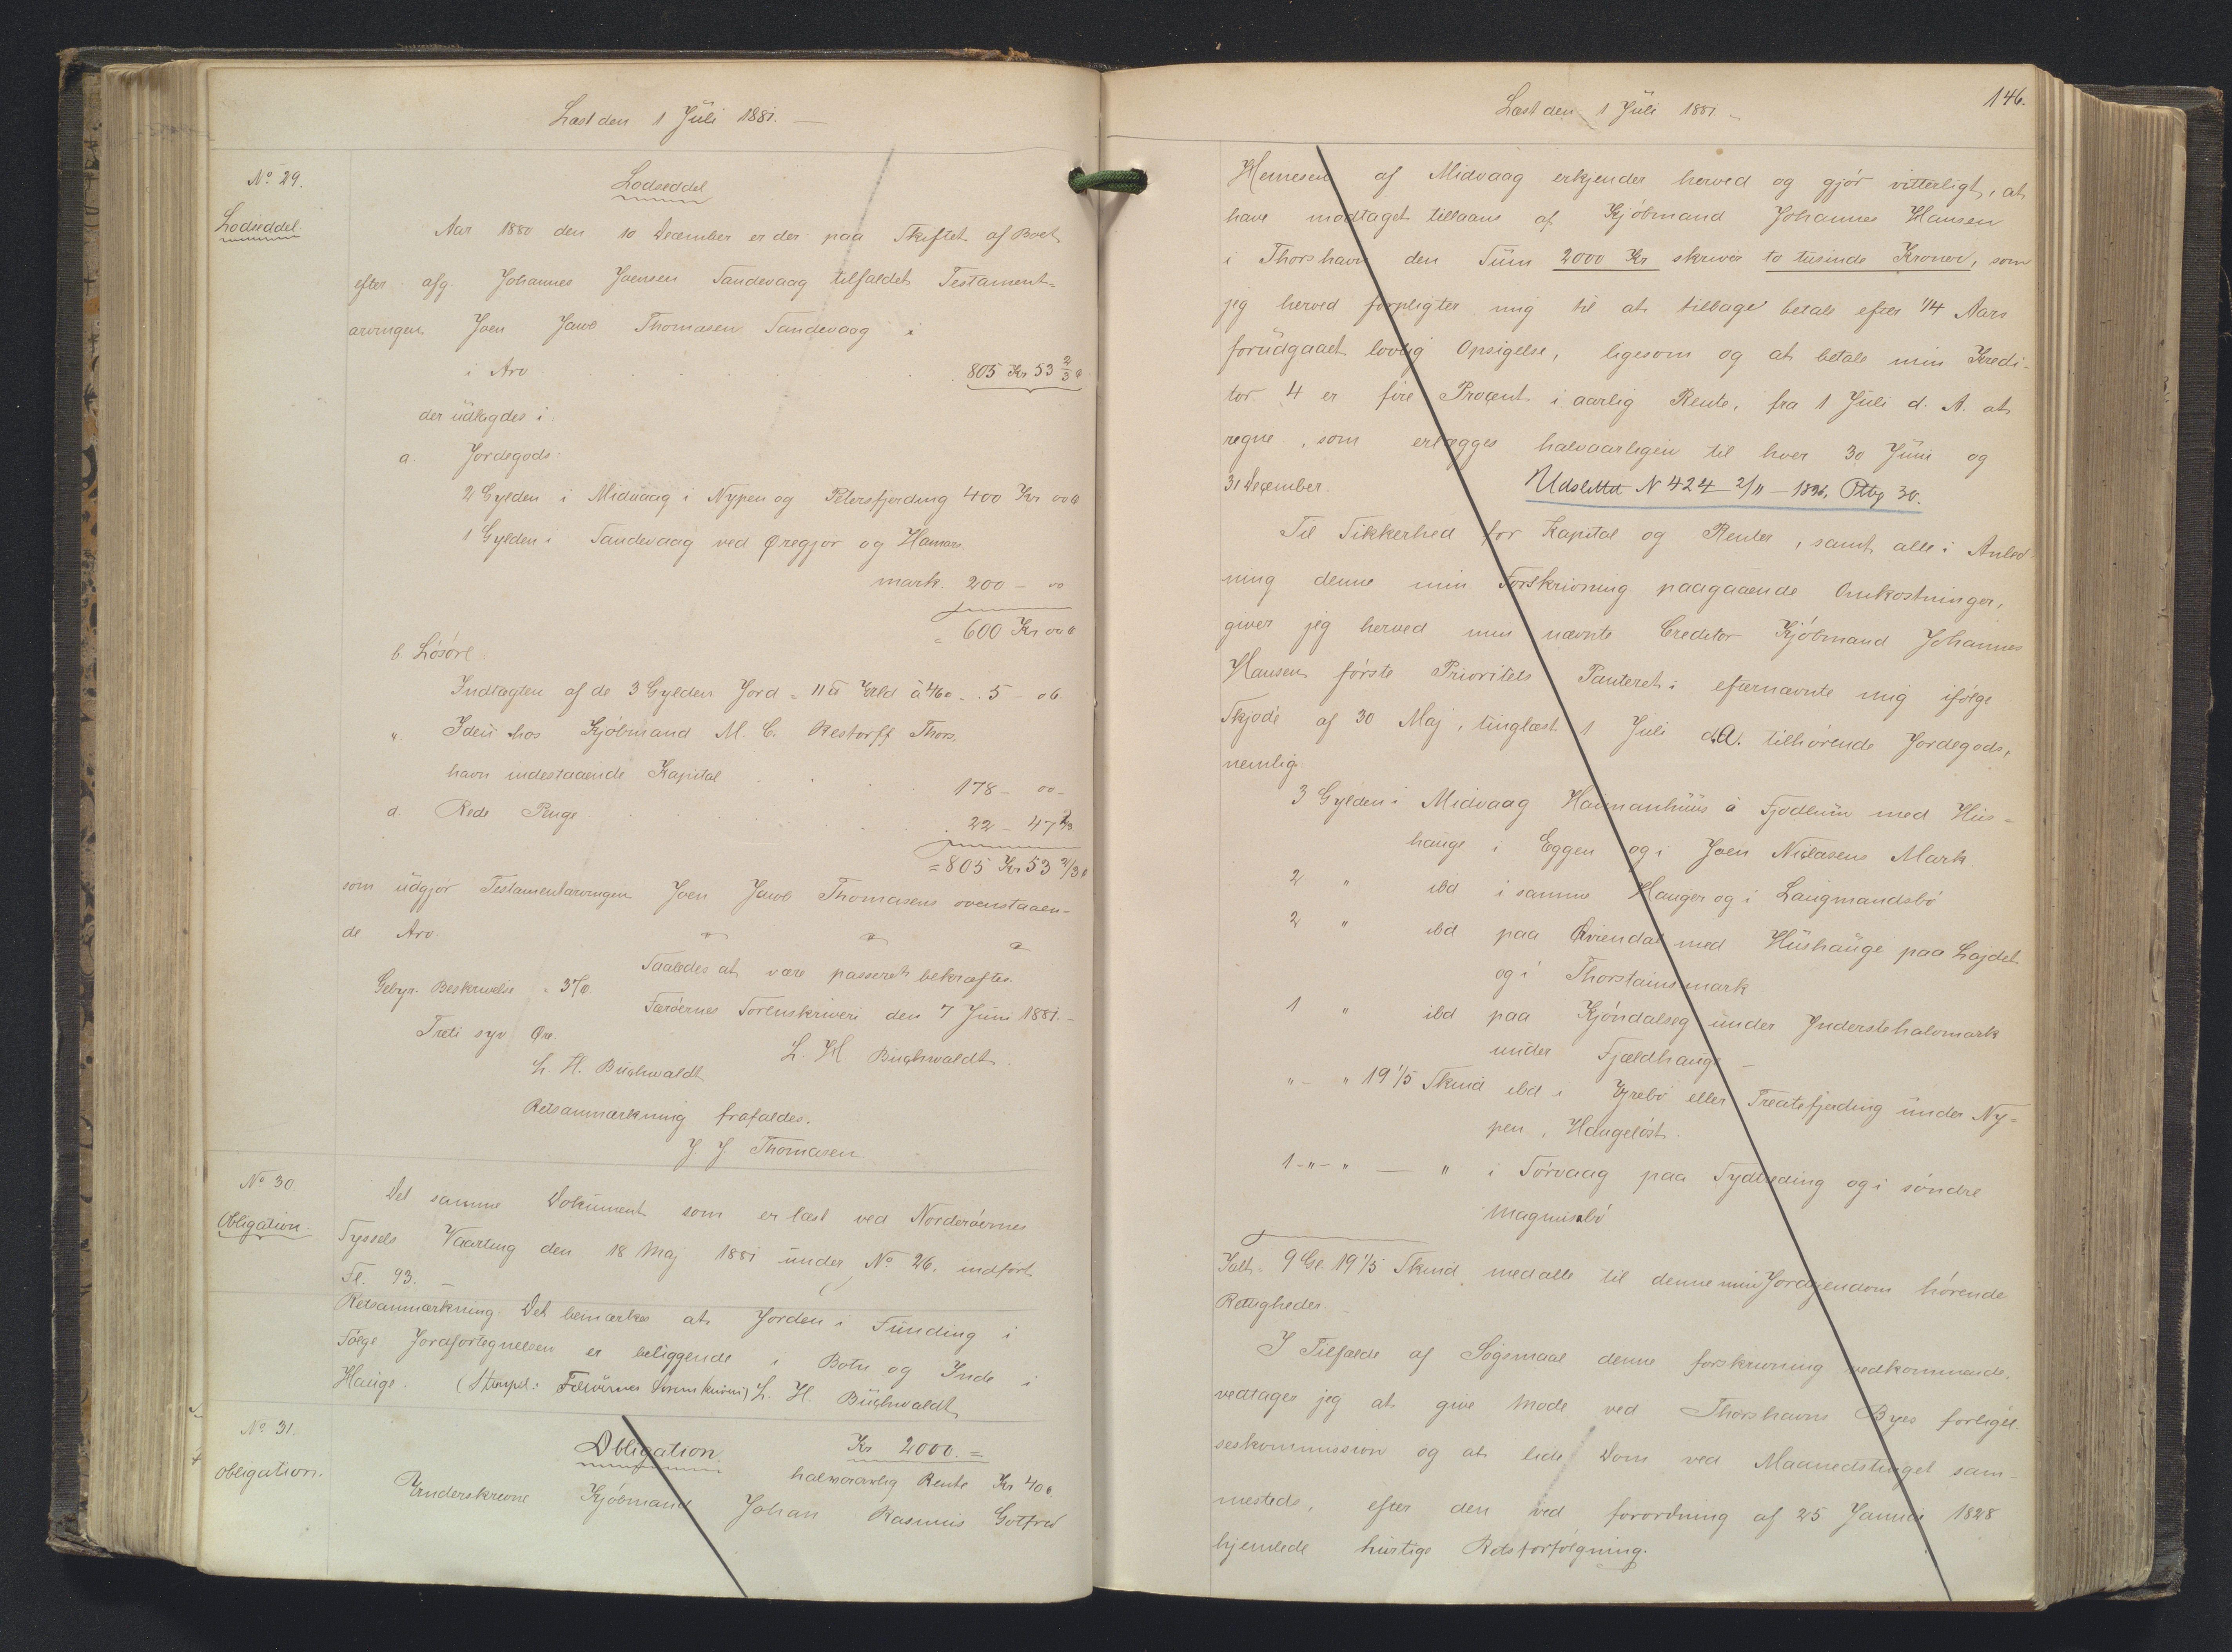 Læst den 1 Juli 1881. —
No. 29.
Lodseddel
Lodseddel
Aar 1880 den 10 December er der paa Skiftet af Boet
efter afg. Johannes Joensen Sandevaag tilfaldet Testament=
arvingen Joen Javo Thomasen Sandevaag i
i Arv . . . . . 805 Kr 53 2/3 ø
der udlagdes i:
a. Jordegods:
2 Gylden i Midvaag i Nypen og Petersfjerding 400 Kr 00 ø
1 Gylden i Sandevaag ved Øregjor og Hamars
mark. 200 – 00
= 600 Kr 00 ø
b. Løsøre
Indtægten af de 3 Gylden Jord = 11 ℔ Uld à 46 ø . . 5 – 06
". Iden hos Kjøbmand M. C. Restorff Thors,
havn indestaaende Kapital . . . 178 – 00 –
d. Rede Penge . . . . . 22 – 47 2/3
= 805 Kr 53 2/3 ø
som udgjør Testamentarvingen Joen Javo Thomasens ovenstaaen-
de Arv.
Saaledes at være passeret bekræftes.
Gebyr. Beskrivelse = 37 ø.
Færøernes Sorenskriveri den 7 Juni 1881. –
Treti syv Øre.
L. H. Buchwaldt.
L. H. Buchwaldt
Retsanmærkning frafaldes.
J J Thomasen
No 30
Obligation.
Det samme Dokument som er læst ved Norderøernes
Syssels Vaarting den 18 Maj 1881 under No 26, indført
Fl. 93. –
Retsanmærkning. Det bemærkes at Jorden i Funding i
Følge Jordfortegnelsen er beliggende i Botn og Inde i
Hauge. (Stempel: Færøernes Sorenskriveri) L. H. Buchwaldt
No 31.
Obligation.
Obligation. Kr 2000. =
halvaarlig Rente Kr 40 ø.
Underskrevne Kjøbmand Johan Rasmus Gotfred
Læst den 1 Juli 1881 –
146.
Heinesen af Midvaag erkjender herved og gjør vitterligt, at
have modtaget tillaans af Kjøbmand Johannes Hansen
i Thorshavn den Sum 2000 Kr skriver to tusinde Kroner, som
jeg herved forpligter mig til at tilbage betale efter 1/4 Aars
forudgaaet lovlig Opsigelse, ligesom og at betale min Kredi-
tor 4 er fire Procent i aarlig Rente, fra 1 Juli d. A. at
regne, som erlægges halvaarligen til hver 30 Juni og
31 December.
Udslettet N 424 – 2/11 – 1896, Ptbg 30.
Til Sikkerhed for Kapital og Renter, samt alle i Anled-
ning denne min Forskrivning paagaaende Omkostninger,
giver jeg herved min nævnte Creditor Kjøbmand Johannes
Hansen første Prioritets Panteret i efternævnte mig ifølge
Skjøde af 30 Maj, tinglæst 1 Juli d. A. tilhørende Jordegods,
nemlig:
3 Gylden i Midvaag Haumanhuus á Fjodlum med Hus=
hauge i Eggen og i Joen Niclasens Mark
2 " ibd i samme Hauger og i Laugmandsbø
2 " ibd paa Qviendal med Hushauge paa Lajdet
og i Thorstainsmark
1 " ibd paa Kjøndalseg under Inderstehalvmark
under Fjældhauge –
" – " 19 1/5 Skind ibd i Yrebø eller Treatefjerding under Ny=
pen, Haugeløst.
1 – " – " — " i Sørvaag paa Sydtreding og i søndre
Magnusbø
Ialt = 9 Gl. 19 1/5 Skind, med alle til denne min Jordejendom hørende
Rettigheder. –
I Tilfælde af Søgsmaal denne forskrivning vedkommende,
vedtager jeg at give Møde ved Thorshavns Byes forligel-
seskommission og at lide Dom ved Maanedstinget sam-
mesteds, efter den ved forordning af 25 Januar 1828
hjemlede hurtige Retsforfølgning.